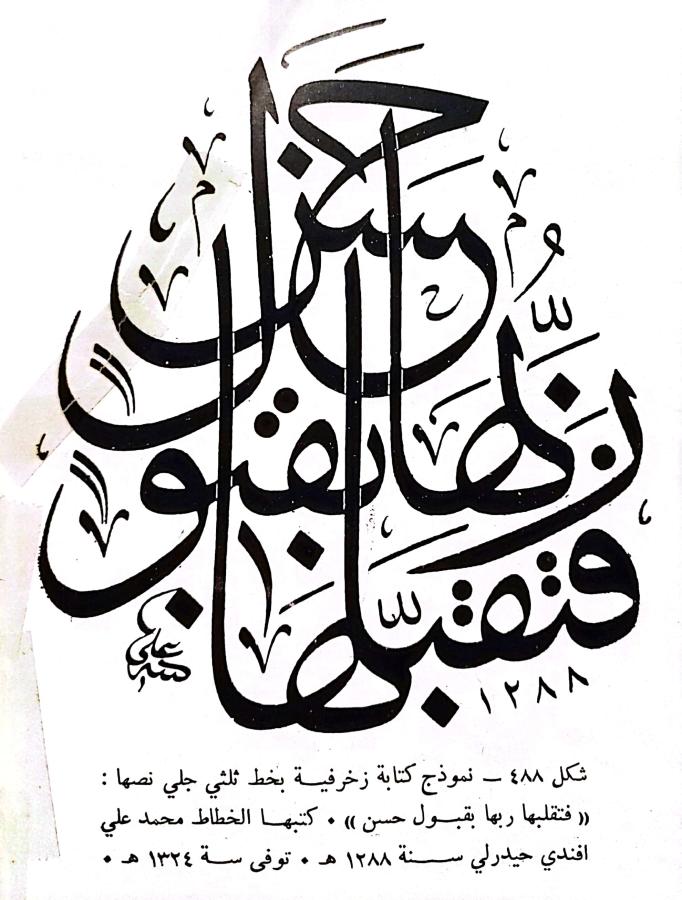 فتقبّلها ربّها بقبولٍ حسنٍ
كتبه علي
١٢٨٨
شكل ٤٨٨ ــ نموذج كتابة زخرفية بخط ثلثي جلي نصها :
« فتقلبها ربها بقبول حسن » ٠ كتبها الخطاط محمد علي
افندي حيدرلي سنة ١٢٨٨ هـ ٠ توفى سة ١٣٢٤ هـ ٠